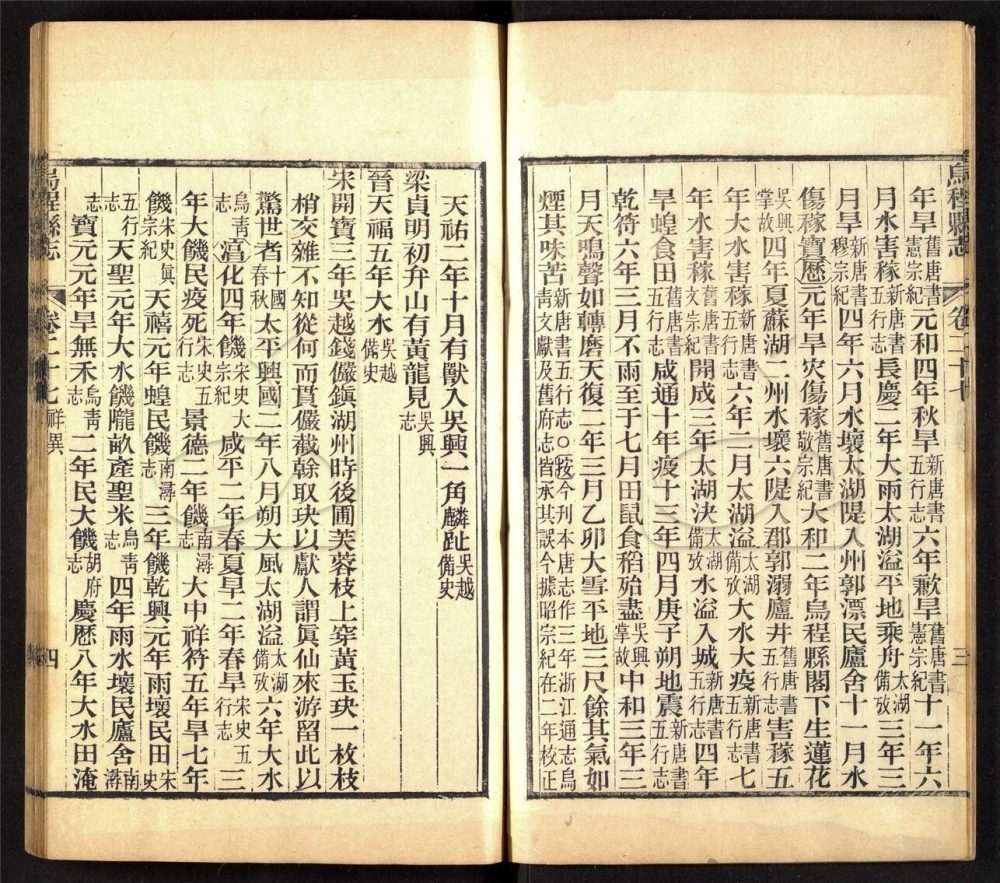 烏程縣志 卷二十七 三
年旱舊唐書憲宗紀元和四年秋旱新唐書五行志六年歉旱舊唐書憲宗紀十一年六
月水害稼新唐書五行志長慶二年大雨太湖溢平地乘舟太湖備攷三年三
月旱新唐書穆宗紀四年六月水壞太湖隄入州郭漂民廬舍十一月水
傷稼寶曆元年旱災傷稼舊唐書敬宗紀大和二年烏程縣閣下生蓮花
吳興掌故四年夏蘇湖二州水壞六隄入郡郭溺廬井舊唐書五行志害稼五
年大水害稼新唐書五行志六年二月太湖溢太湖備攷大水大疫新唐書五行志七
年水害稼舊唐書文宗紀開成三年太湖決太湖備攷水溢入城新唐書五行志四年
旱蝗食田舊唐書五行志咸通十年疫十三年四月庚子朔地震新唐書五行志
乾符六年三月不雨至于七月田鼠食稻殆盡吳興掌故中和三年三
月天鳴聲如轉磨天復二年三月乙卯大雪平地三尺餘其氣如
煙其味苦新唐書五行志○按今刊本唐志作三年浙江通志烏青文獻及舊府志皆承其誤今據昭宗紀在二年校正
天祐二年十月有獸入吳興一角麟趾吳越備史
梁貞明初弁山有黃龍見吳興志
晉天福五年大水吳越備史
宋開寶三年吳越錢儼鎮湖州時後圃芙蓉枝上穿黃玉玦一枚枝
梢交雜不知從何而貫儼截榦取玦以獻人謂眞仙來游留此以
驚世者十國春秋太平興國二年八月朔大風太湖溢太湖備攷六年大水
烏青志淳化四年饑宋史太宗紀咸平二年春夏旱二年春旱宋史五行志三
年大饑民疫死宋史五行志景德二年饑南潯志大中祥符五年旱七年
饑宋史眞宗紀天禧元年蝗民饑南潯志三年饑乾興元年雨壞民田宋史
五行志天聖元年大水饑隴畝產聖米烏青志四年雨水壞民廬舍南潯
志寶元元年旱無禾烏青志二年民大饑胡府志慶曆八年大水田淹
烏程縣志 卷二十七 祥異 四